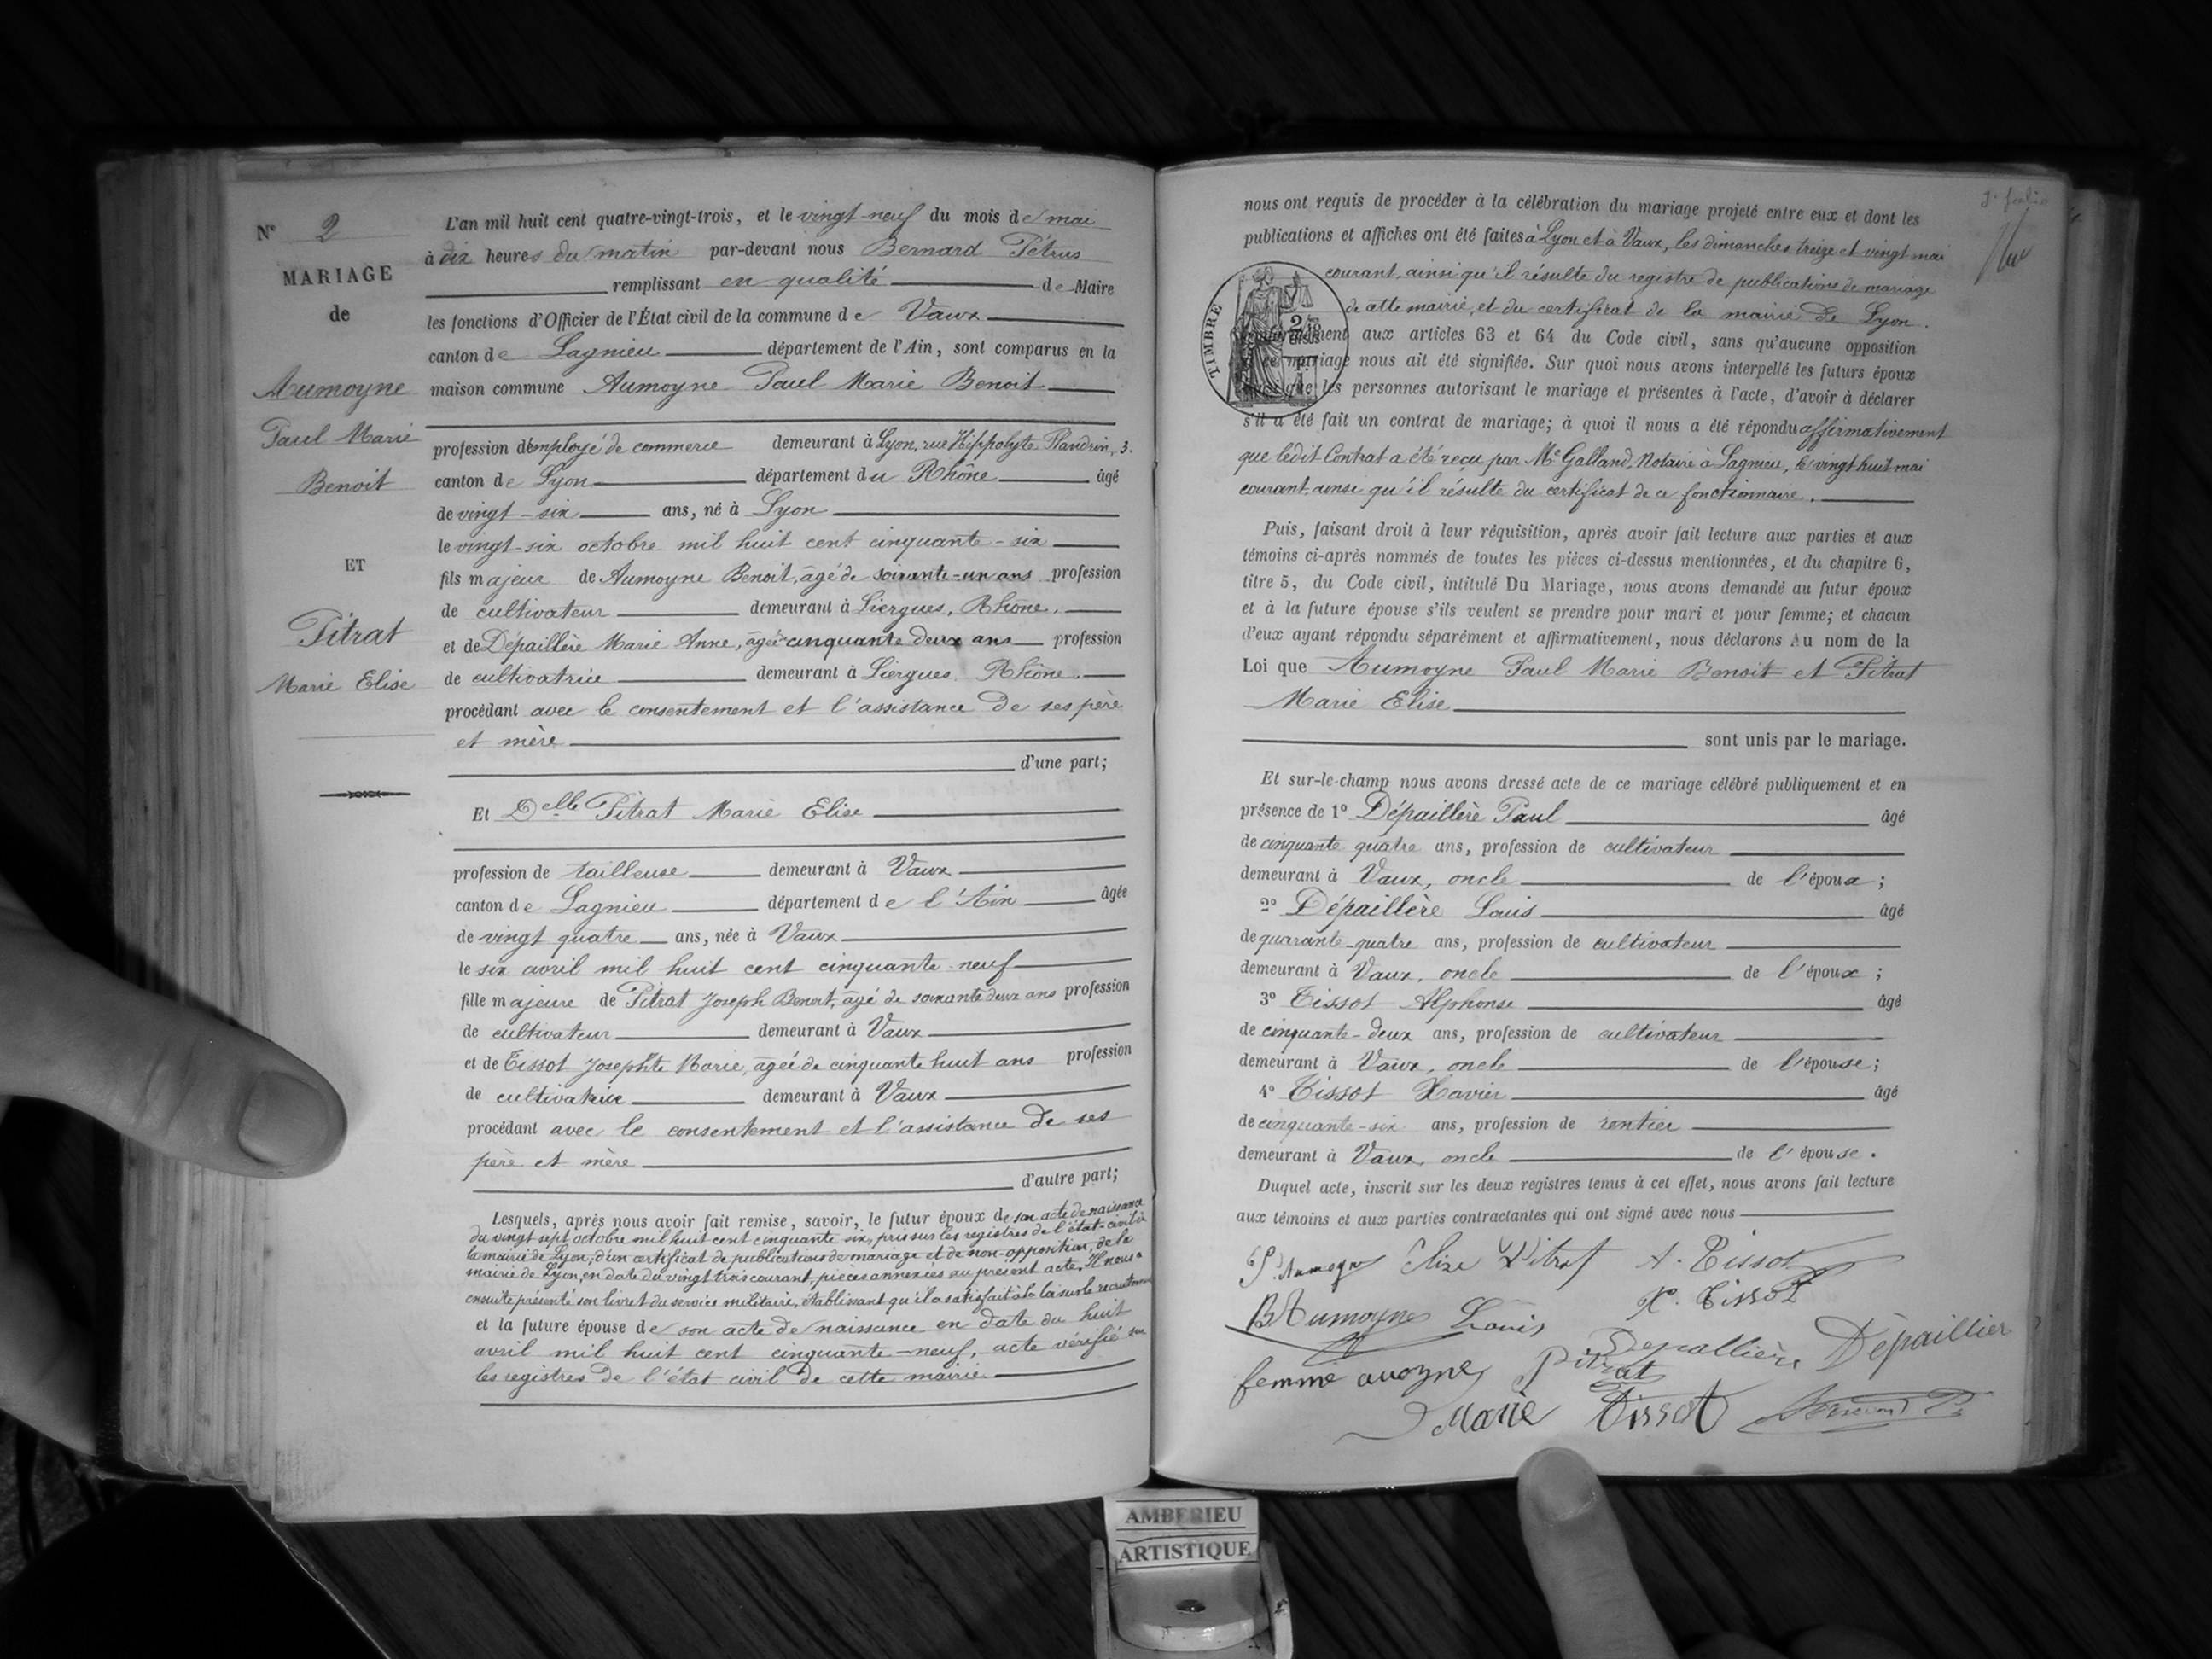 N° 2
MARIAGE
de
Aumoyne
Paul Marie
Benoit
ET
Pitrat
Marie Elise
L'an mil huit cent quatre-vingt-trois, et le vingt-neuf du mois de mai
à dix heures du matin par-devant nous Bernard Pétrus
remplissant en qualité de Maire
les fonctions d'Officier de l'État civil de la commune de Vaux
canton de Lagnieu département de l'Ain, sont comparus en la
maison commune Aumoyne Paul Marie Benoit
profession d'employé de commerce demeurant à Lyon, rue Hippolyte Flandrin, 3.
canton de Lyon département du Rhône âgé
de vingt-six ans, né à Lyon
le vingt-six octobre mil huit cent cinquante-six
fils majeur de Aumoyne Benoit, âgé de soixante-un ans profession
de cultivateur demeurant à Liergues, Rhône.
et de Dépaillère Marie Anne, âgée cinquante deux ans profession
de cultivatrice demeurant à Liergues, Rhône.
procédant avec le consentement et l'assistance de ses père
et mère
d'une part;
Et Delle Pitrat Marie Elise
profession de tailleuse demeurant à Vaux
canton de Lagnieu département de l'Ain âgée
de vingt quatre ans, née à Vaux
le six avril mil huit cent cinquante-neuf
fille majeure de Pitrat Joseph Benoit, âgé de soixante deux ans profession
de cultivateur demeurant à Vaux
et de Tissot Josephte Marie, agée de cinquante huit ans profession
de cultivatrice demeurant à Vaux
procédant avec le consentement et l'assistance de ses
père et mère
d'autre part;
Lesquels, après nous avoir fait remise, savoir, le futur époux de son acte de naissance
du vingt sept octobre mil huit cent cinquante six, pris sur les registres de l'état-civil de
la mairie de Lyon, d'un certificat de publications de mariage et de non-opposition, de la
mairie de Lyon, en date du vingt trois courant, pièces annexées au présent acte. Il nous a
ensuite présenté son livret du service militaire, établissant qu'il a satisfait à la loi sur le recrutement
et la future épouse de son acte de naissance en date du huit
avril mil huit cent cinquante-neuf, acte vérifié sur
les registres de l'état civil de cette mairie.
3e folio
nous ont requis de procéder à la célébration du mariage projeté entre eux et dont les
publications et affiches ont été faites à Lyon et à Vaux, les dimanches treize et vingt mai
courant, ainsi qu'il résulte du registre de publications de mariage
de cette mairie, et du certificat de la mairie de Lyon.
TIMBRE
conformément aux articles 63 et 64 du Code civil, sans qu'aucune opposition
à ce mariage nous ait été signifiée. Sur quoi nous avons interpellé les futurs époux
ainsi que les personnes autorisant le mariage et présentes à l'acte, d'avoir à déclarer
s'il a été fait un contrat de mariage; à quoi il nous a été répondu affirmativement
que ledit Contrat a été reçu par Me Galland, Notaire à Lagnieu, le vingt huit mai
courant, ainsi qu'il résulte du certificat de ce fonctionnaire.
Puis, faisant droit à leur réquisition, après avoir fait lecture aux parties et aux
témoins ci-après nommés de toutes les pièces ci-dessus mentionnées, et du chapitre 6,
titre 5, du Code civil, intitulé Du Mariage, nous avons demandé au futur époux
et à la future épouse s'ils veulent se prendre pour mari et pour femme; et chacun
d'eux ayant répondu séparément et affirmativement, nous déclarons Au nom de la
Loi que Aumoyne Paul Marie Benoit et Pitrat
Marie Elise
sont unis par le mariage.
Et sur-le-champ nous avons dressé acte de ce mariage célébré publiquement et en
présence de 1° Dépaillère Paul âgé
de cinquante quatre ans, profession de cultivateur
demeurant à Vaux, oncle de l'époux;
2° Dépaillère Louis âgé
de quarante-quatre ans, profession de cultivateur
demeurant à Vaux, oncle de l'époux;
3° Tissot Alphonse âgé
de cinquante-deux ans, profession de cultivateur
demeurant à Vaux, oncle de l'épouse;
4° Tissot Xavier âgé
de cinquante-six ans, profession de rentier
demeurant à Vaux, oncle de l'épouse.
Duquel acte, inscrit sur les deux registres tenus à cet effet, nous avons fait lecture
aux témoins et aux parties contractantes qui ont signé avec nous
P. Aumoyne Elise Pitrat A. Tissot
X. Tissot
B Aumoyne Louis Depallière Dépaillier
femme auoyne Pitrat
Marie Tissot Bernard P.
AMBERIEU
ARTISTIQUE